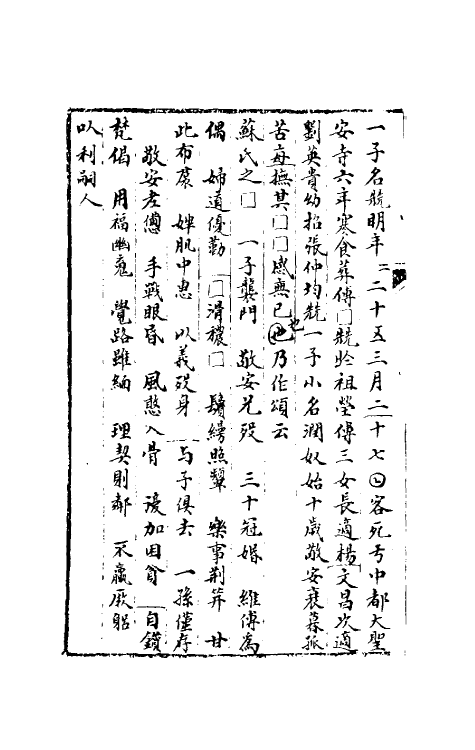 一子名兢明年二十五三月二十七日客死于中都大聖
安寺六年寒食葬傅□兢於祖塋傅三女長適楊文昌次適
劉英貴幼招張仲均兢一子小名潤奴始十歲敬安衰暮孤
苦每撫其□□感無已也乃作頌云
蘇氏之□ 一子龔門 敬安兄歿 三十冠婚 維傅爲
偶 婦道優勤 □滑穠□ 鬚縷照顰 樂事荆笄 甘
此布裠 媁肌中患 以義歿身 与子俱去 一孫僅存
敬安左傯 手戰眼昏 風憨入骨 謾加困貪 自鑽
梵偈 用福幽䰟 覺路雖緬 理契則鄰 不羸厥躬
以利嗣人